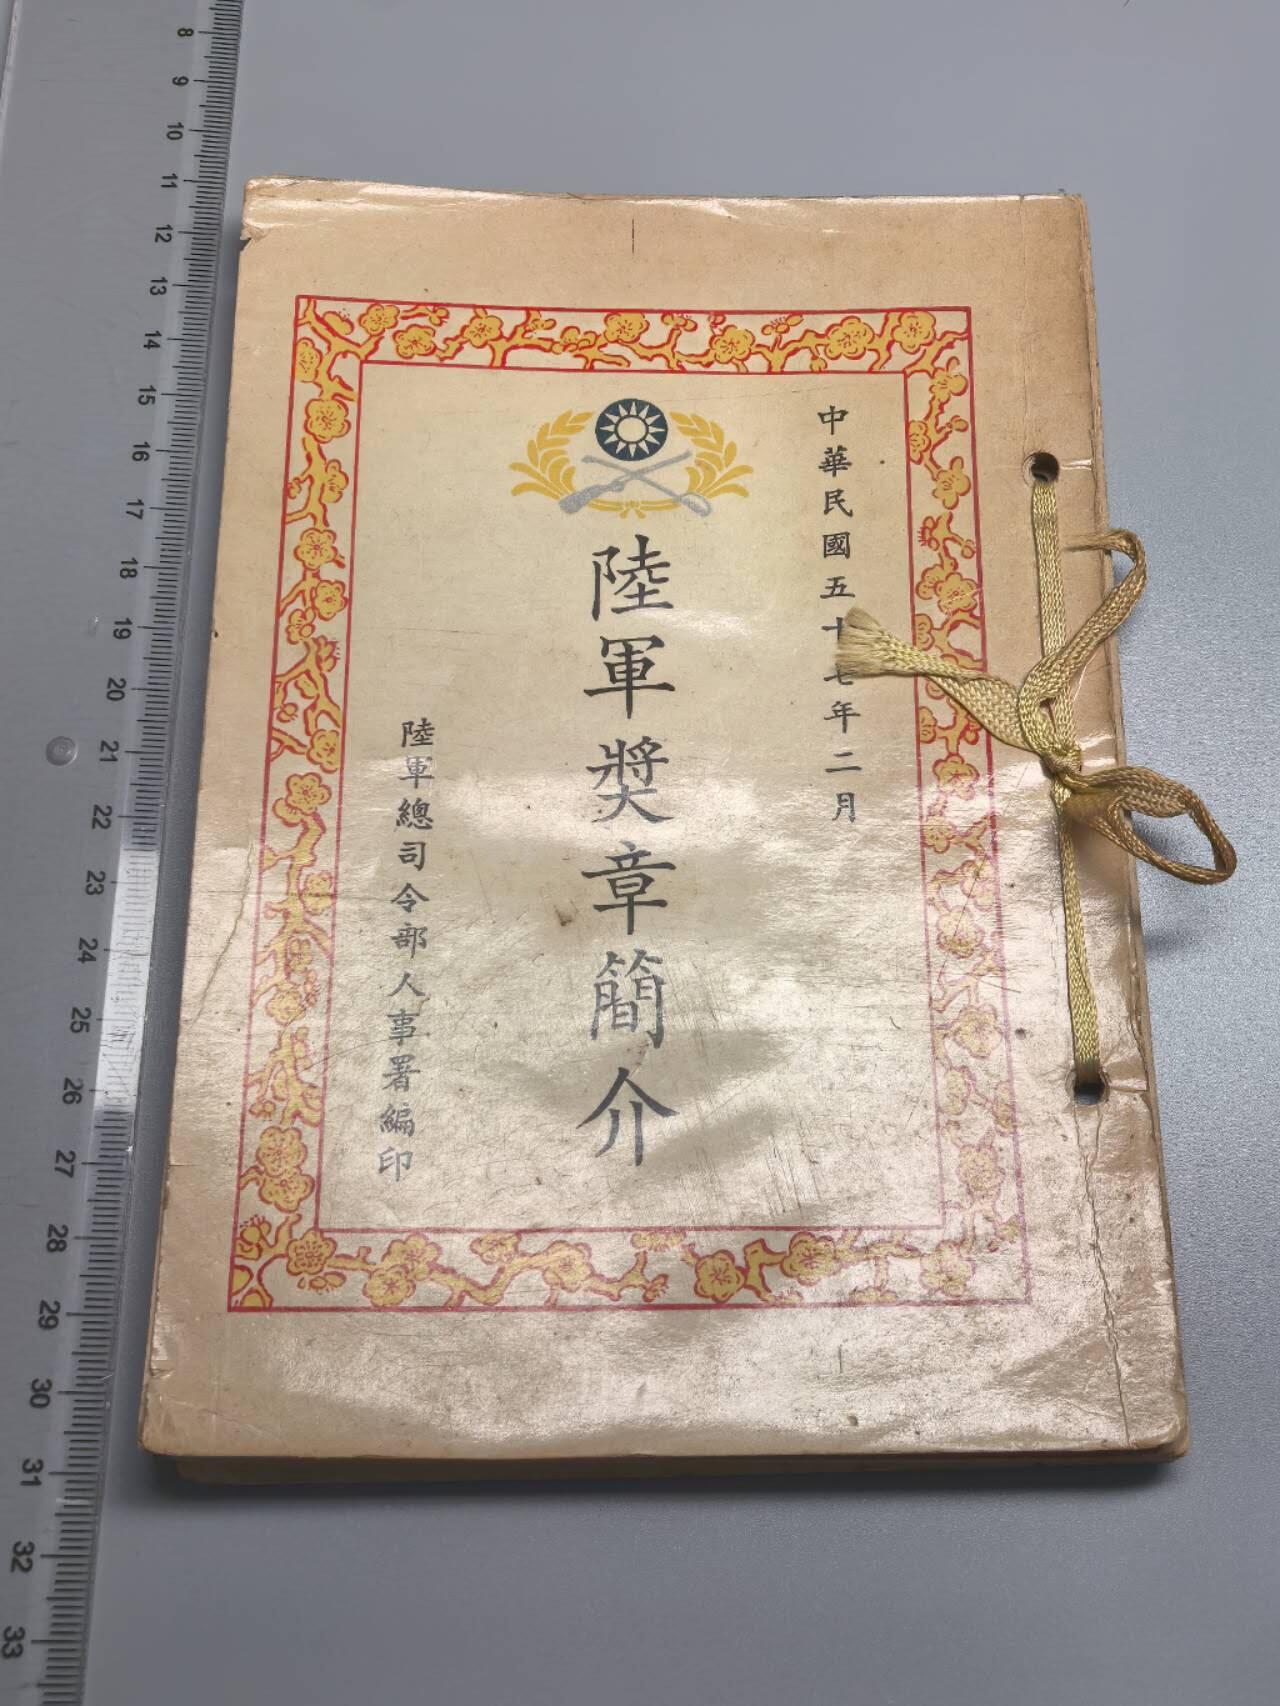 中華民國五十七年二月
陸軍獎章簡介
陸軍總司令部人事署編印
8
9
10
11
12
13
14
15
16
17
18
19
20
21
22
23
24
25
26
27
28
29
30
31
32
33